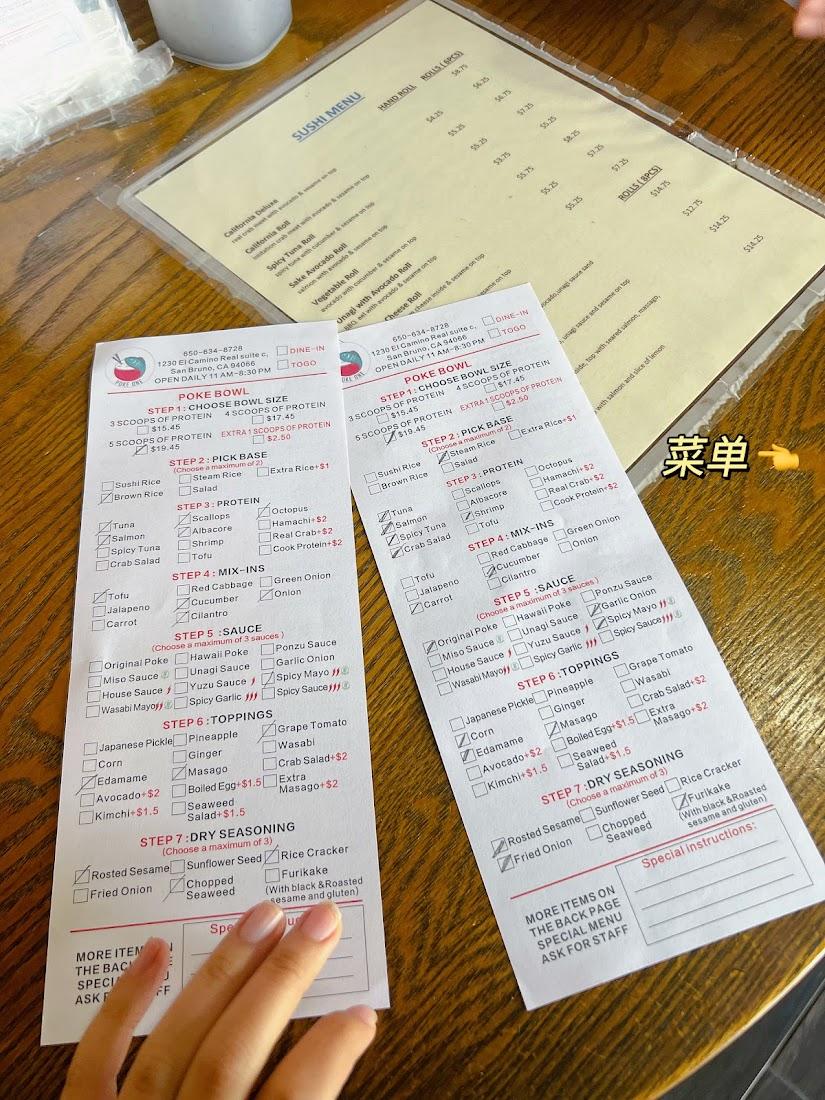 SUSHI MENU
HAND ROLL
ROLLS ( 6PCS)
$8.75
$4.25 $6.25
$5.25 $6.75
$5.25 $7.25
$3.75 $5.25
$5.75 $8.25
$5.25 $7.25
$5.25 $7.25
ROLLS ( 8PCS)
$14.75
$12.75
$14.25
$14.25
California Deluxe
real crab meat with avocado & sesame on top
California Roll
imitation crab meat with avocado & sesame on top
Spicy Tuna Roll
spicy tuna with cucumber & sesame on top
Sake Avocado Roll
salmon with avocado & sesame on top
Vegetable Roll
avocado with cucumber & sesame on top
Unagi with Avocado Roll
eel with avocado & sesame on top
Cheese Roll
cheese inside & sesame on top
unagi sauce and sesame on top
top with seared salmon, massago,
with salmon and slice of lemon
菜单
POKE ONE
650-634-8728
1230 El Camino Real suite c,
San Bruno, CA 94066
OPEN DAILY 11 AM-8:30 PM
DINE-IN
TOGO
POKE BOWL
STEP 1: CHOOSE BOWL SIZE
3 SCOOPS OF PROTEIN 4 SCOOPS OF PROTEIN
$15.45 $17.45
5 SCOOPS OF PROTEIN EXTRA 1 SCOOPS OF PROTEIN
$19.45 $2.50
STEP 2: PICK BASE
(Choose a maximum of 2)
Sushi Rice Steam Rice Extra Rice+$1
Brown Rice Salad
STEP 3: PROTEIN
Tuna Scallops Octopus
Salmon Albacore Hamachi+$2
Spicy Tuna Shrimp Real Crab+$2
Crab Salad Tofu Cook Protein+$2
STEP 4: MIX-INS
Tofu Red Cabbage Green Onion
Jalapeno Cucumber Onion
Carrot Cilantro
STEP 5 :SAUCE
(Choose a maximum of 3 sauces )
Original Poke Hawaii Poke Ponzu Sauce
Miso Sauce Unagi Sauce Garlic Onion
House Sauce Yuzu Sauce Spicy Mayo
Wasabi Mayo Spicy Garlic Spicy Sauce
STEP 6 :TOPPINGS
Japanese Pickle Pineapple Grape Tomato
Corn Ginger Wasabi
Edamame Masago Crab Salad+$2
Avocado+$2 Boiled Egg+$1.5 Extra
Masago+$2
Kimchi+$1.5 Seaweed
Salad+$1.5
STEP 7:DRY SEASONING
(Choose a maximum of 3)
Rosted Sesame Sunflower Seed Rice Cracker
Fried Onion Chopped
Seaweed Furikake
(With black &Roasted
sesame and gluten)
MORE ITEMS ON
THE BACK
ASK FOR STAFF
650-634-8728
1230 El Camino Real suite c,
San Bruno, CA 94066
OPEN DAILY 11 AM-8:30 PM
DINE-IN
TOGO
POKE BOWL
STEP 1: CHOOSE BOWL SIZE
3 SCOOPS OF PROTEIN 4 SCOOPS OF PROTEIN
$15.45 $17.45
5 SCOOPS OF PROTEIN EXTRA 1 SCOOPS OF PROTEIN
$19.45 $2.50
STEP 2: PICK BASE
(Choose a maximum of 2)
Sushi Rice Steam Rice Extra Rice+$1
Brown Rice Salad
STEP 3: PROTEIN
Tuna Scallops Octopus
Salmon Albacore Hamachi+$2
Spicy Tuna Shrimp Real Crab+$2
Crab Salad Tofu Cook Protein+$2
STEP 4: MIX-INS
Tofu Red Cabbage Green Onion
Jalapeno Cucumber Onion
Carrot Cilantro
STEP 5 :SAUCE
(Choose a maximum of 3 sauces )
Original Poke Hawaii Poke Ponzu Sauce
Miso Sauce Unagi Sauce Garlic Onion
House Sauce Yuzu Sauce Spicy Mayo
Wasabi Mayo Spicy Garlic Spicy Sauce
STEP 6 :TOPPINGS
Japanese Pickle Pineapple Grape Tomato
Corn Ginger Wasabi
Edamame Masago Crab Salad+$2
Avocado+$2 Boiled Egg+$1.5 Extra
Masago+$2
Kimchi+$1.5 Seaweed
Salad+$1.5
STEP 7:DRY SEASONING
(Choose a maximum of 3)
Rosted Sesame Sunflower Seed Rice Cracker
Fried Onion Chopped
Seaweed Furikake
(With black &Roasted
sesame and gluten)
MORE ITEMS ON
THE BACK PAGE
SPECIAL MENU
ASK FOR STAFF
Special instructions: